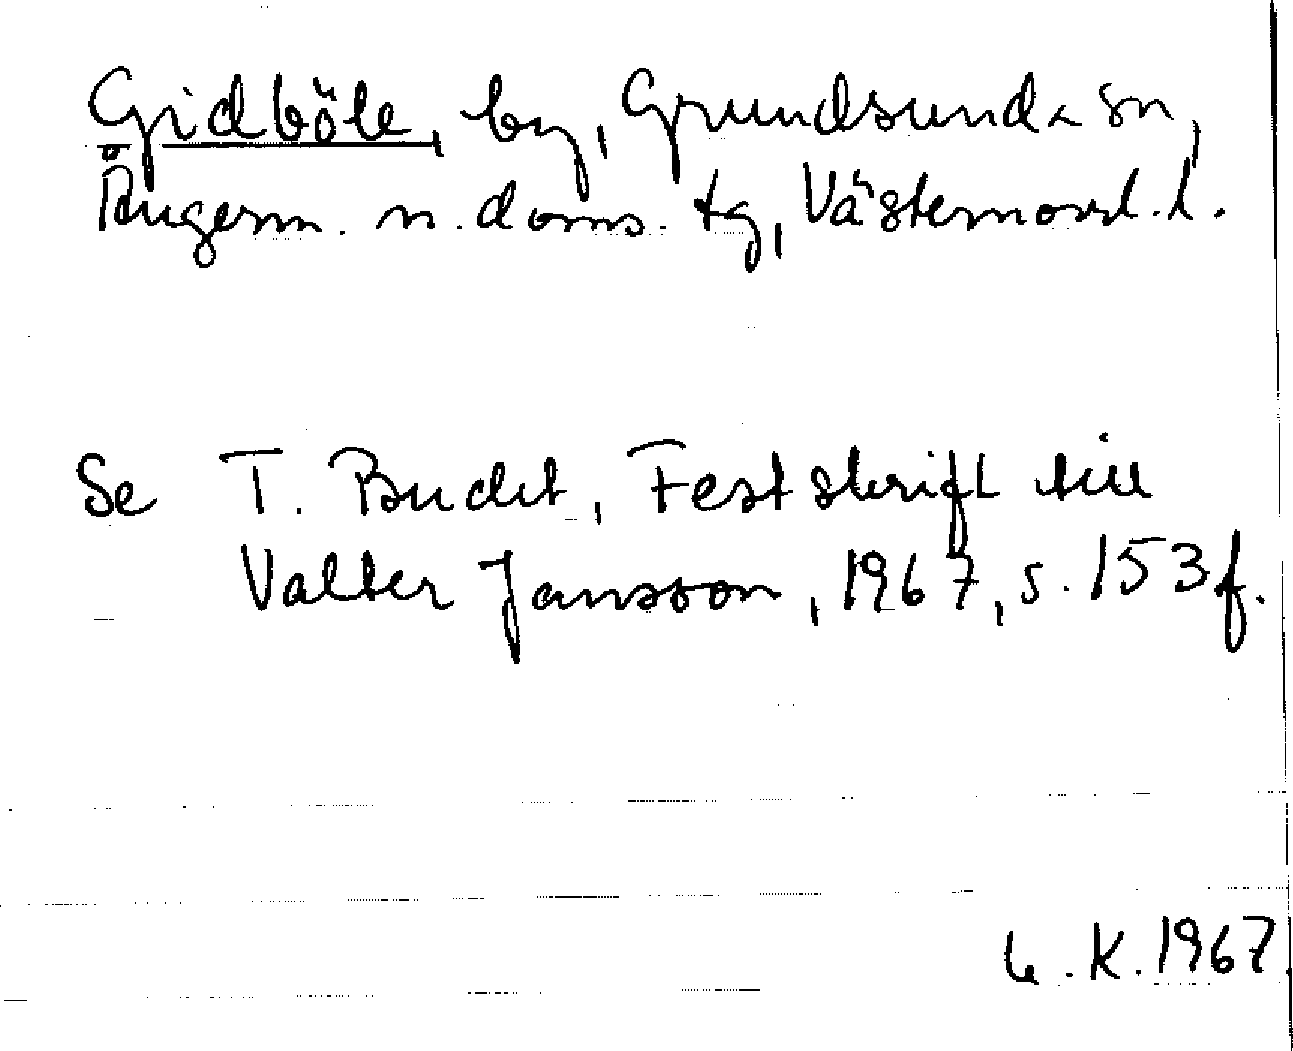 Gidböle, by, Grundsunda sn,
Ångerm. n. doms. tg, Västernorrl. l.
Se T. Bucht, Festskrift till
Valter Jansson, 1967, s. 153 f.
K. 1967